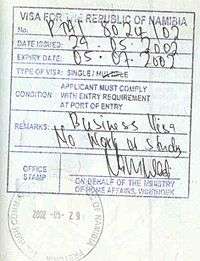 VISA FOR THE REPUBLIC OF NAMIBIA
No.: 8024/02
DATE ISSUED: 29.05.2002
EXPIRY DATE: 05.07.2002
TYPE OF VISA: SINGLE / MULTIPLE
CONDITION: APPLICANT MUST COMPLY
WITH ENTRY REQUIREMENT
AT PORT OF ENTRY
REMARKS: Business Visa
No Work or Study
OFFICE
STAMP
ON BEHALF OF THE MINISTRY
OF HOME AFFAIRS, WINDHOEK
2002 -05- 29